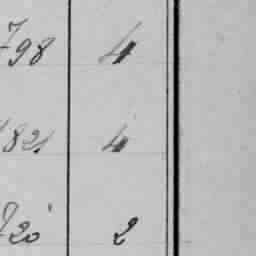 798 4
821 4
720 2